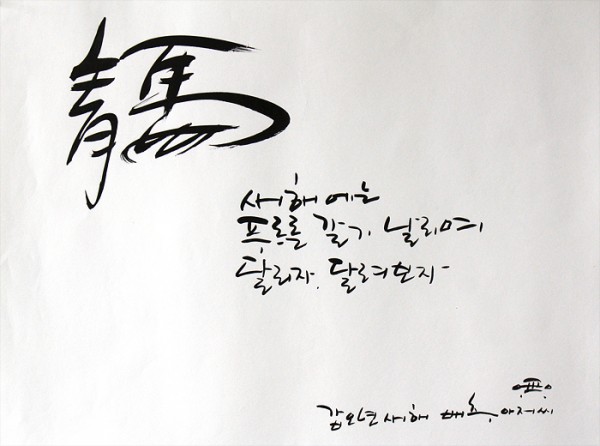 靑馬
새해에는
푸르른 갈기 날리며
달리자, 달려보자-
갑오년 새해 배호 아저씨